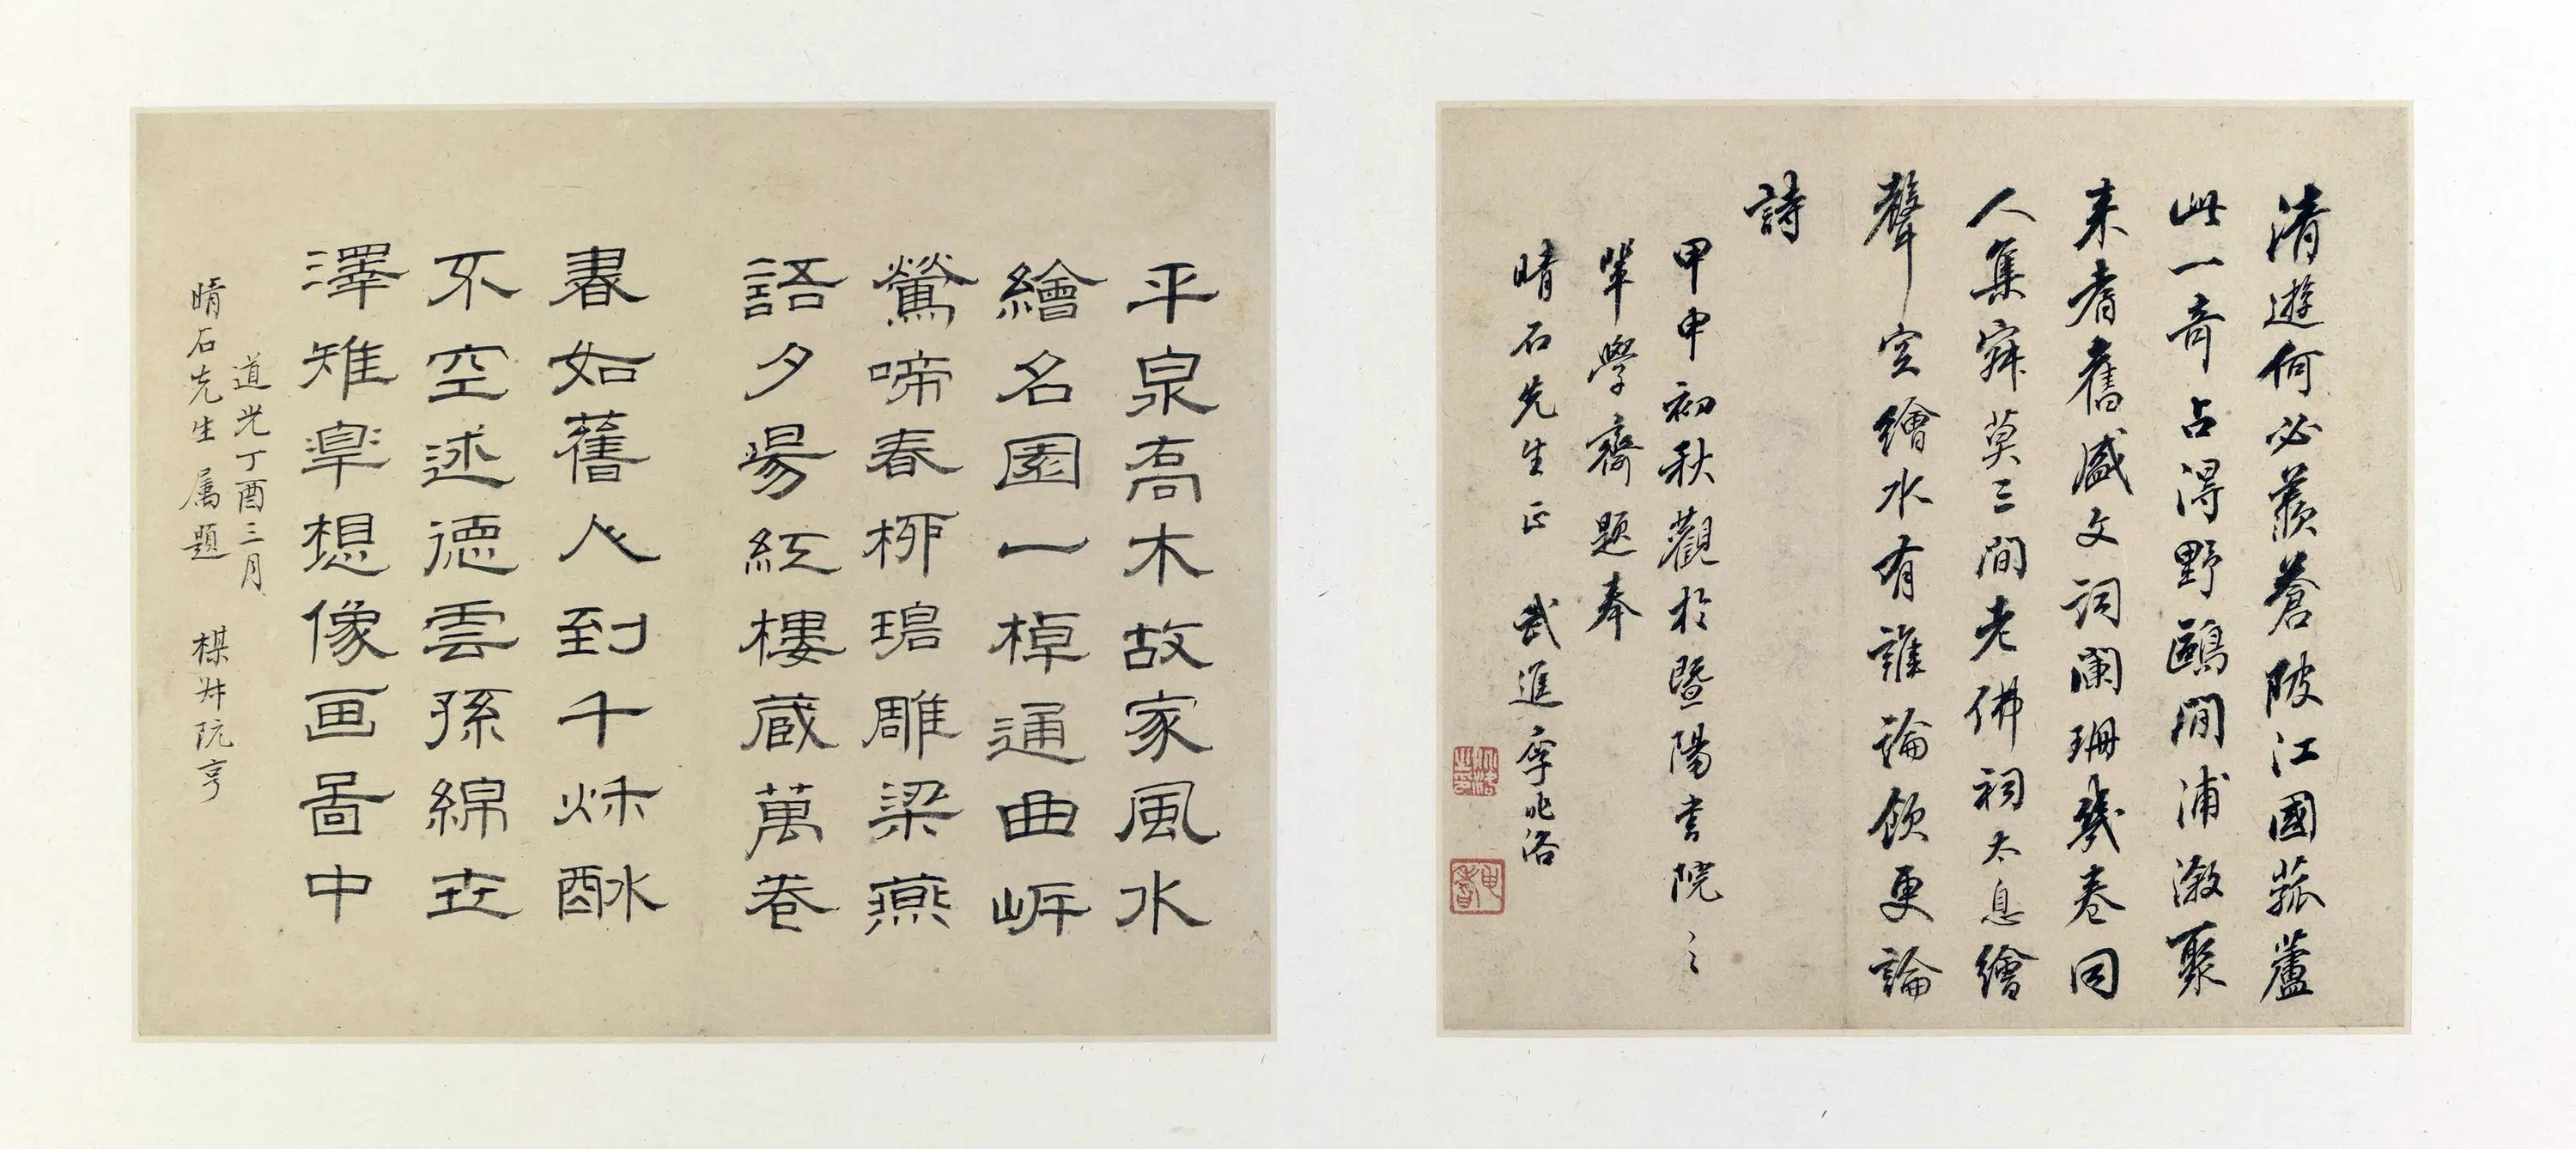 清遊何必羨蒼陂江國菰蘆
此一奇占得野鷗閒浦漵聚
来耆舊盛文詞闌珊幾卷同
人集寂莫三間老佛祠太息繪
聲空繪水有誰論飲更論
詩
甲申初秋觀於暨陽書院之
輩學齋題奉
晴石先生正 武進李兆洛
平泉喬木故家風水
繪名園一棹通曲岍
鶯啼春柳碧雕梁燕
語夕陽紅樓藏萬卷
書如舊人到千秌酬
不空述德雲孫綿丗
澤雉皋想像画啚中
道光丁酉三月
晴石先生属題 楳叔阮亨